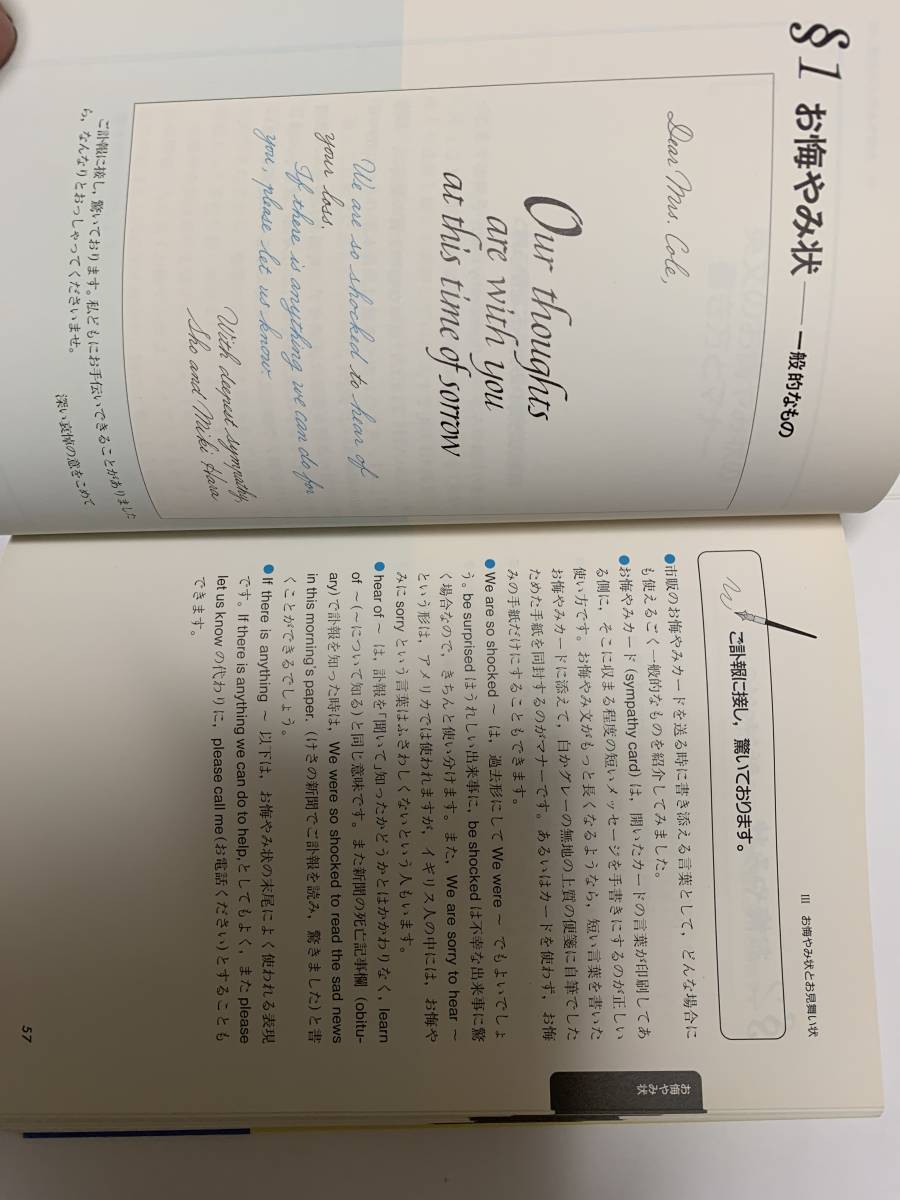 §1 お悔やみ状——一般的なもの
Dear Mrs. Cole,
Our thoughts
are with you
at this time of sorrow
We are so shocked to hear of
your loss.
If there is anything we can do for
you, please let us know
With deepest sympathy,
Sho and Miki Hara
ご訃報に接し，驚いております。私どもにお手伝いできることがありました
ら，なんなりとおっしゃってくださいませ。
深い哀悼の意をこめて
III お悔やみ状とお見舞い状
ご訃報に接し，驚いております。
●市販のお悔やみカードを送る時に書き添える言葉として，どんな場合に
も使えるごく一般的なものを紹介してみました。
●お悔やみカード(sympathy card)は，開いたカードの言葉が印刷してあ
る側に，そこに収まる程度の短いメッセージを手書きにするのが正しい
使い方です。お悔やみ文がもっと長くなるようなら，短い言葉を書いた
お悔やみカードに添えて，白かグレーの無地の上質の便箋に自筆でした
ためた手紙を同封するのがマナーです。あるいはカードを使わず，お悔
みの手紙だけにすることもできます。
●We are so shocked ～ は，過去形にして We were ～ でもよいでしょ
う。be surprised はうれしい出来事に，be shocked は不幸な出来事に驚
く場合なので，きちんと使い分けます。また，We are sorry to hear ～
という形は，アメリカでは使われますが，イギリス人の中には，お悔や
みに sorry という言葉はふさわしくないという人もいます。
●hear of ～ は，訃報を「聞いて」知ったかどうかとはかかわりなく，learn
of ～(～について知る)と同じ意味です。また新聞の死亡記事欄 (obitu-
ary)で訃報を知った時は，We were so shocked to read the sad news
in this morning's paper. (けさの新聞でご訃報を読み，驚きました)と書
くことができるでしょう。
●If there is anything ～ 以下は，お悔やみ状の末尾によく使われる表現
です。If there is anything we can do to help, としてもよく，また please
let us know の代わりに，please call me(お電話ください)とすることも
できます。
お悔やみ状
57